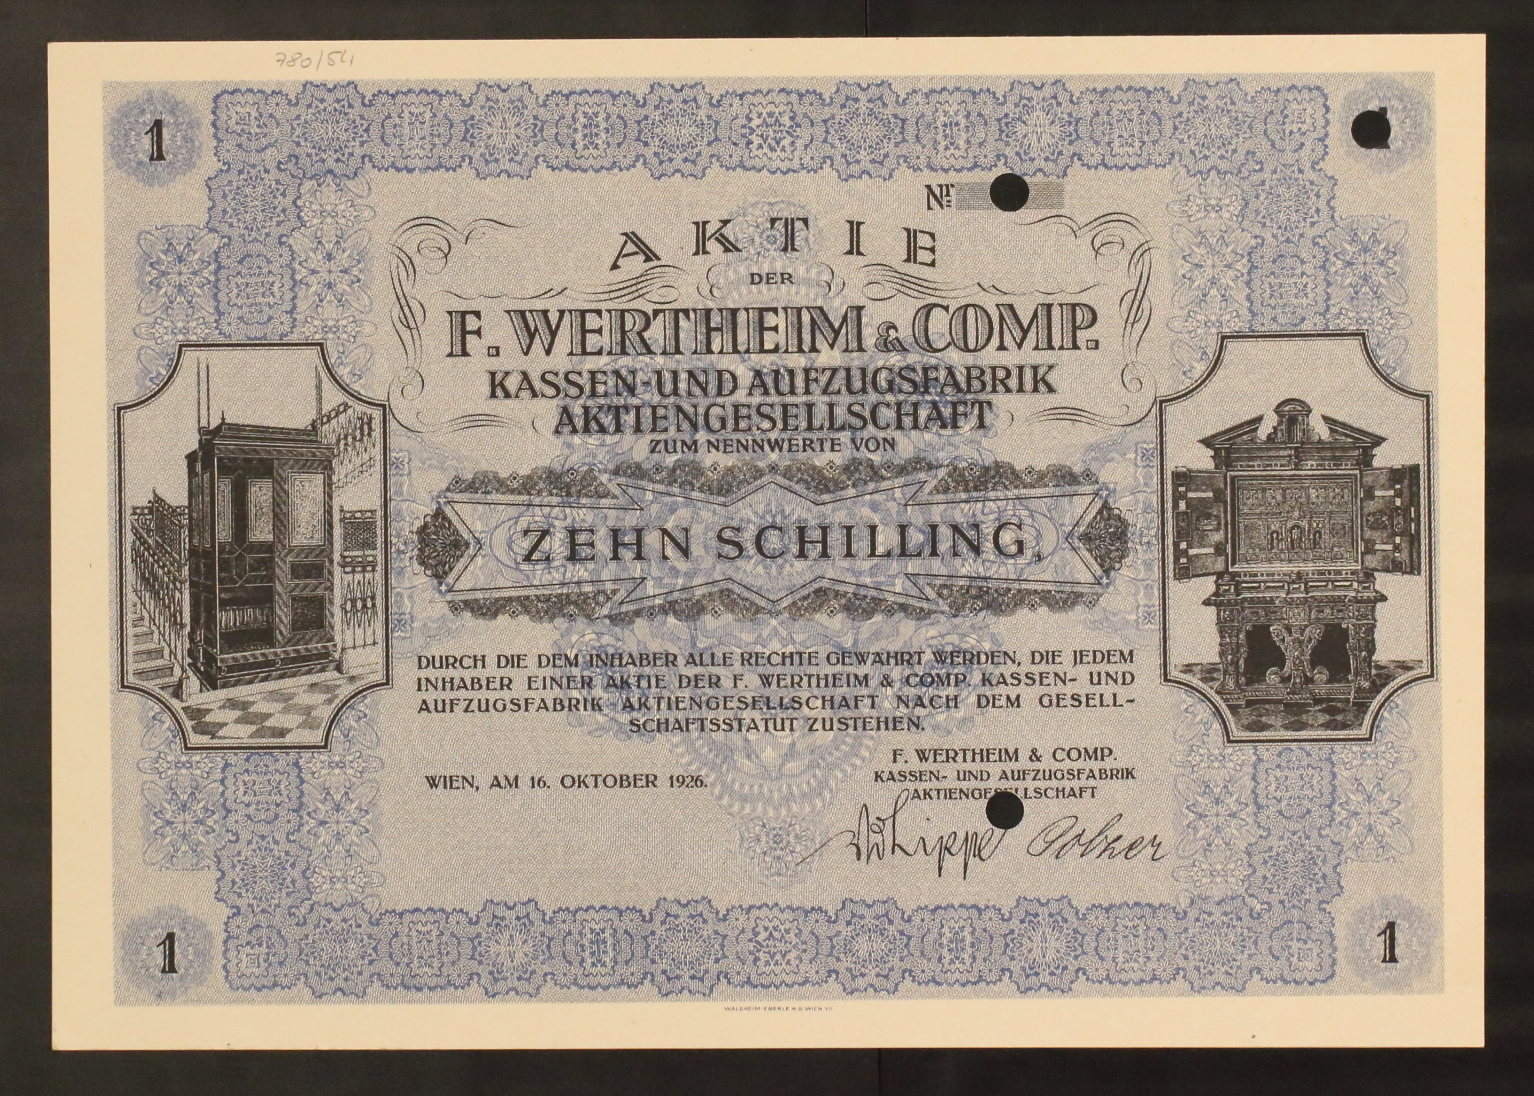 780/54
1
Nr.
AKTIE
DER
F. WERTHEIM & COMP.
KASSEN-UND AUFZUGSFABRIK
AKTIENGESELLSCHAFT
ZUM NENNWERTE VON
ZEHN SCHILLING,
DURCH DIE DEM INHABER ALLE RECHTE GEWÄHRT WERDEN, DIE JEDEM
INHABER EINER AKTIE DER F. WERTHEIM & COMP. KASSEN- UND
AUFZUGSFABRIK-AKTIENGESELLSCHAFT NACH DEM GESELL-
SCHAFTSSTATUT ZUSTEHEN.
WIEN, AM 16. OKTOBER 1926.
F. WERTHEIM & COMP.
KASSEN- UND AUFZUGSFABRIK
AKTIENGESELLSCHAFT
1
1
WALDHEIM-EBERLE A.G. WIEN VII.